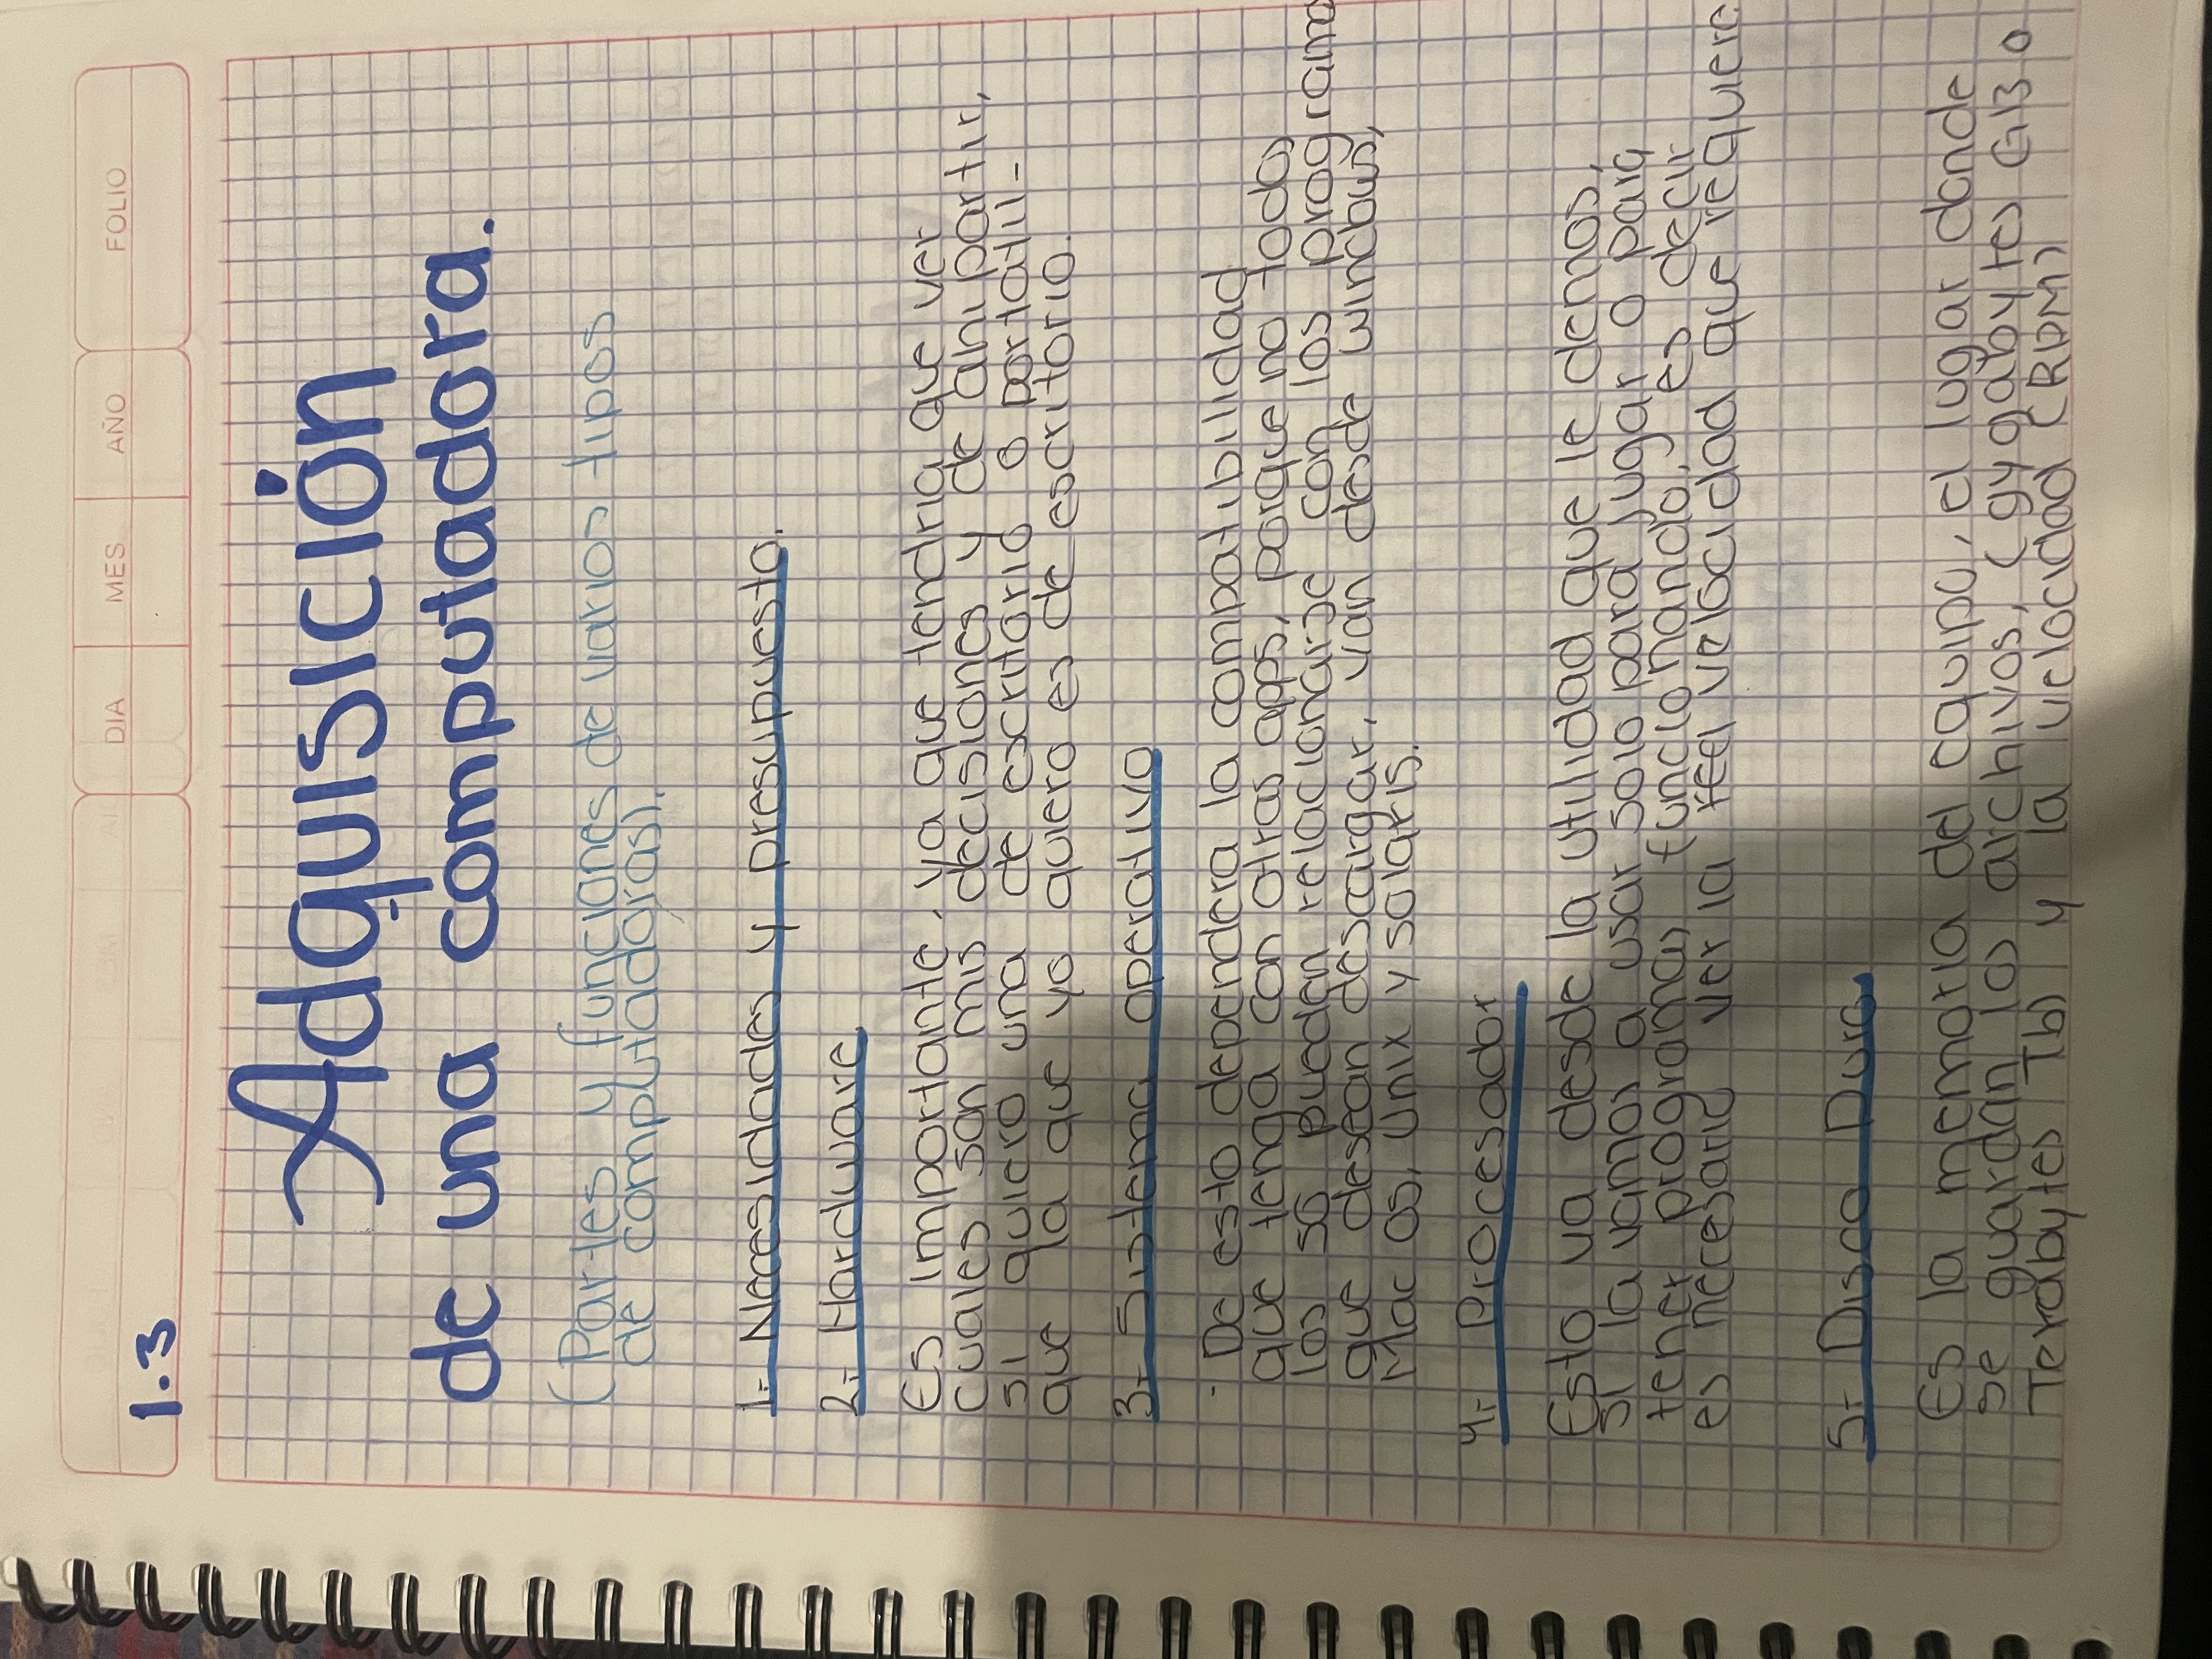 DIA MES AÑO FOLIO
1.3
Adquisición
de una computadora.
(Partes y funciones de varios tipos
de computadoras).
1.- Necesidades y presupuesto.
2.- Hardware
Es importante, ya que tendria que ver
cuales son mis decisiones y de ahi partir,
si quiero una de escritorio o portatil-
que la que yo quiero es de escritorio.
3.- Sistema operativo
- De esto dependera la compatibilidad
que tenga con otras apps, porque no todos
los so pueden relacionarse con los programa
que desean descargar, van desde windows,
Mac Os, Unix y solaris.
4.- Procesador
Esto va desde la utilidad que le demos,
si la vamos a usar solo para jugar o para
tener programas funcionando, es decir
es necesario ver la velocidad que requiere
5.- Disco Duro.
Es la memoria del equipo, el lugar donde
se guardan los archivos, (gygabytes GB o
Terabytes Tb) y la velocidad (RPM)